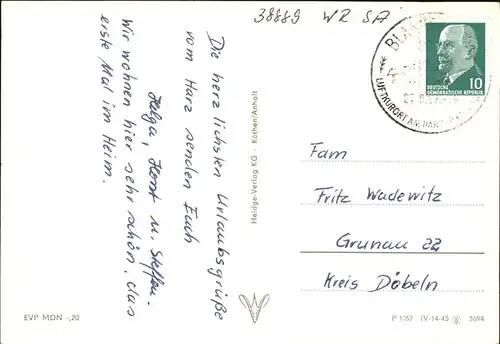 38889 WR SA
Die herzlichsten Urlaubsgrüße
vom Harz senden Euch
Helga, Horst u. Steffen.
Wir wohnen hier sehr schön. das
erste Mal im Heim.
Heldge-Verlag KG · Köthen/Anhalt
LUFTKURORT AM HARZ
DEUTSCHE
DEMOKRATISCHE REPUBLIK
10
Fam
Fritz Wadewitz
Grunau 22
Kreis Döbeln
EVP MDN -,20
P 1/67 IV-14-45 3694